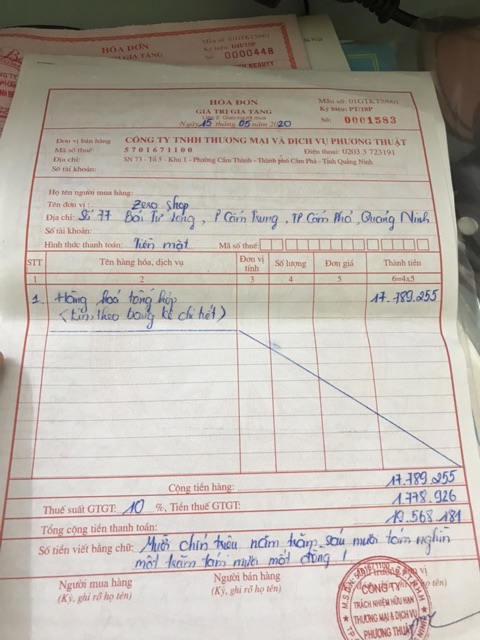 HÓA ĐƠN
0000448
HÓA ĐƠN
GIÁ TRỊ GIA TĂNG
Liên 2: Giao người mua
Ngày 15 tháng 05 năm 2020
Mẫu số: 01GTKT3/001
Ký hiệu: PT/18P
Số: 0001583
Đơn vị bán hàng CÔNG TY TNHH THƯƠNG MẠI VÀ DỊCH VỤ PHƯƠNG THUẬT
Mã số thuế: 5701671100 Điện thoại: 0203 3 723191
Địa chỉ: SN 73 - Tổ 5 - Khu 1 - Phường Cẩm Thành - Thành phố Cẩm Phả - Tỉnh Quảng Ninh
Số tài khoản:
Họ tên người mua hàng:
Tên đơn vị: Zero Shop
Địa chỉ: Số 77 Bái Tử Long, P Cẩm Trung, TP Cẩm Phả, Quảng Ninh
Số tài khoản:
Hình thức thanh toán: Tiền mặt Mã số thuế:
STT Tên hàng hóa, dịch vụ Đơn vị tính Số lượng Đơn giá Thành tiền
1 2 3 4 5 6=4x5
1. Hàng hoá tổng hợp 17.789.255
(Kèm theo bảng kê chi tiết)
Cộng tiền hàng: 17.789.255
Thuế suất GTGT: 10 %, Tiền thuế GTGT: 1.778.926
Tổng cộng tiền thanh toán: 19.568.181
Số tiền viết bằng chữ: Mười chín triệu năm trăm sáu mươi tám nghìn
một trăm tám mươi mốt đồng!
Người mua hàng Người bán hàng
(Ký, ghi rõ họ tên) (Ký, ghi rõ họ tên)
CÔNG TY
TRÁCH NHIỆM HỮU HẠN
THƯƠNG MẠI & DỊCH VỤ
PHƯƠNG THUẬT